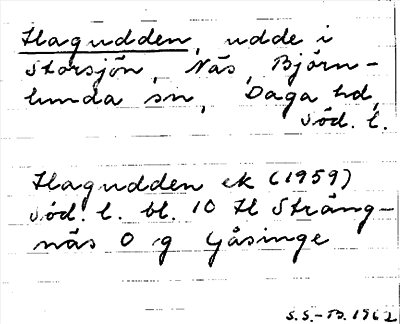 Hagudden, udde i
Storsjön, Näs, Björn-
lunda sn, Daga hd,
Söd. l.
Hagudden ek (1959)
Söd. l. bl. 10 H Sträng-
näs O g Gåsinge
S.S.-B. 1962